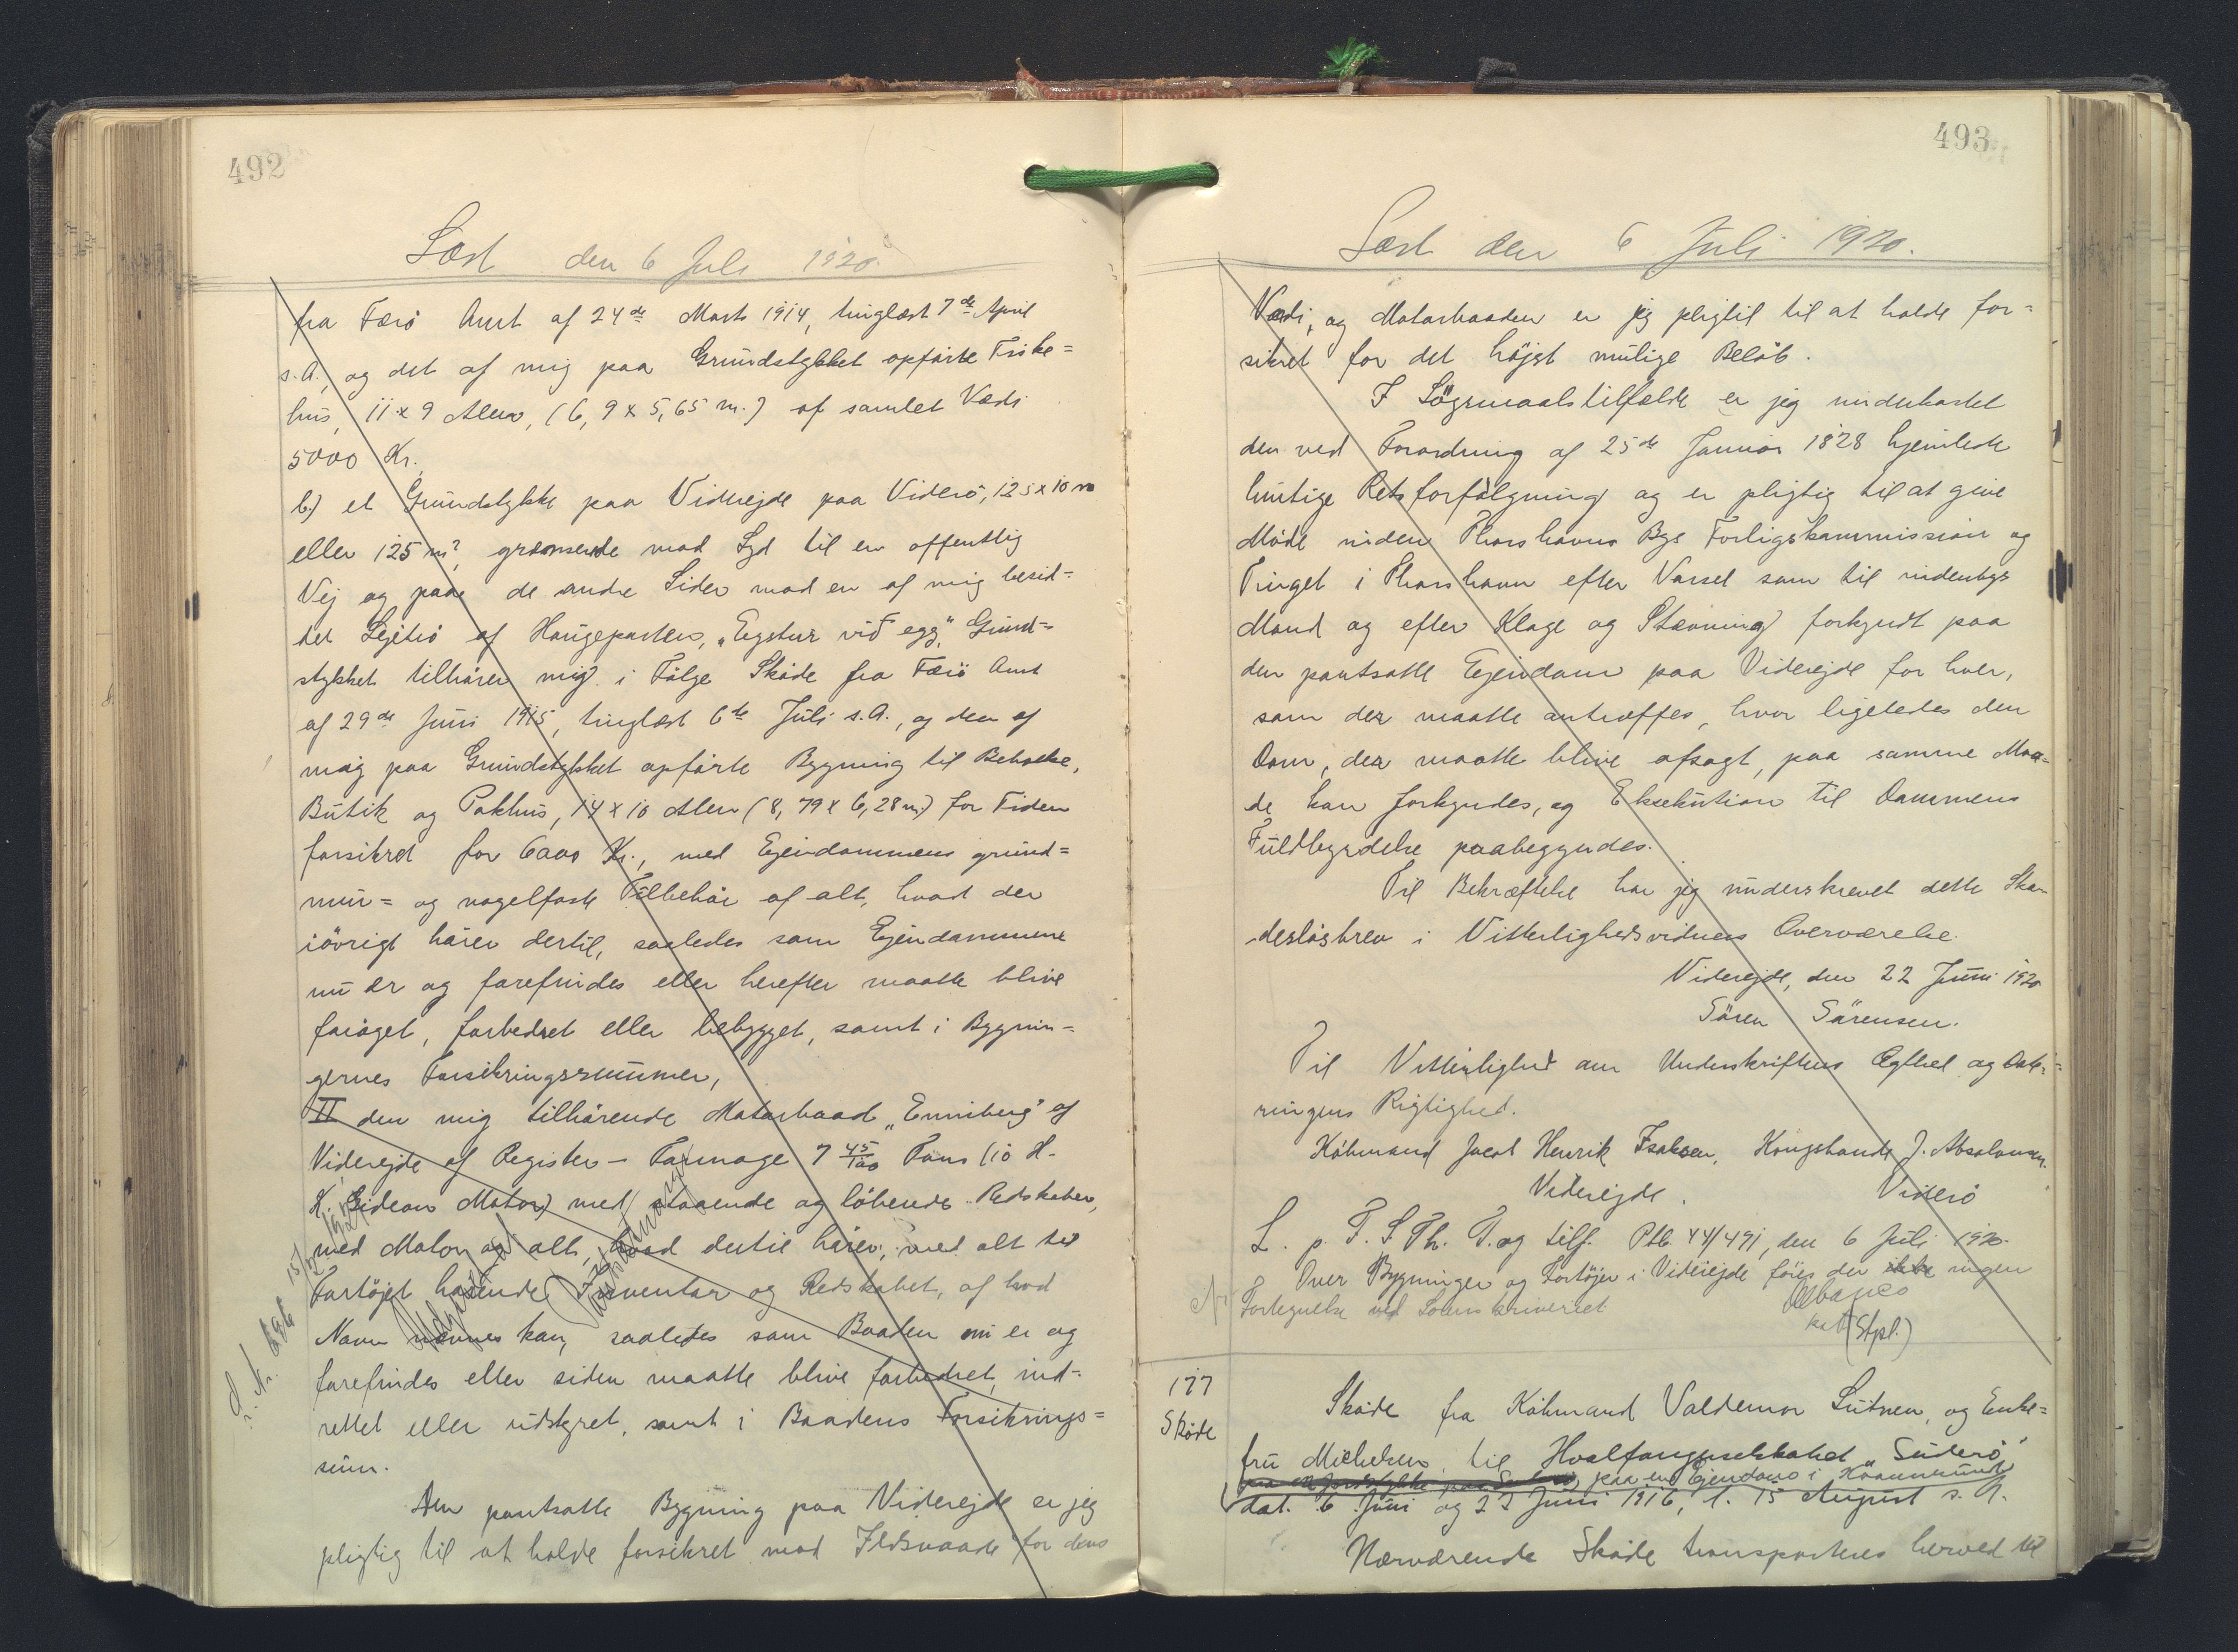 492
Læst den 6 Juli 1920.
fra Færö Amt af 24de Marts 1914, tinglæst 7de April
s.A., og det af mig paa Grundstykket opførte Fiske=
hus, 11 x 9 Alen, (6,9 x 5,65 m.) af samlet Værdi
5000 Kr.
b.) et Grundstykke paa Viderejde paa Viderö, 12,5 x 10 m
eller 125 m², grænsende mod Syd til en offentlig
Vej og paa de andre Sider mod en af mig besid=
det Lejetrö af Haugeparten, „Eystur við egg“, Grund=
stykket tilhører mig i Følge Skøde fra Færö Amt
af 29de Juni 1915, tinglæst 6te Juli s.A., og den af
mig paa Grundstykket opførte Bygning til Beboelse,
Butik og Pakhus, 14 x 10 Alen (8,79 x 6,28 m.) for Tiden
forsikret for 6000 Kr., med Ejendommens grund=
mur= og nagelfaste Tilbehör af alt, hvad der
iövrigt hörer dertil, saaledes som Ejendommene
nu er og forefindes eller herefter maatte blive
foröget, forbedret eller bebygget, samt i Bygnin=
gernes Forsikringssummer,
II den mig tilhörende Motorbaad „Enniberg“ af
Viderejde af Register-Tonnage 7 45/100 Tons (10 H.
K. Gideon Motor) med staaende og löbende Redskaber,
med Motor og alt, hvad dertil hörer, med alt til
Fartöjet hörende Inventar og Redskabet, af hvad
Navn nævnes kan, saaledes som Baaden nu er og
forefindes eller siden maatte blive forbedret, ind=
rettet eller udstyret, samt i Baadens Forsikrings=
sum.
Den pantsatte Bygning paa Viderejde er jeg
pligtig til at holde forsikret mod Ildsvaade for dens
493
Læst den 6 Juli 1920.
Værdi, og Motorbaaden er jeg pligtil til at holde for=
sikret for det höjst mulige Belöb.
I Sögsmaalstilfælde er jeg underkastet
den ved Forordning af 25de Januar 1828 hjemlede
hurtige Retsforfølgning og er pligtig til at give
Møde inden Thorshavns Bys Forligskommission og
Tinget i Thorshavn efter Varsel som til indenbys
Mand og efter Klage og Stævning forkyndt paa
den pantsatte Ejendom paa Viderejde for hver,
som der maatte antræffes, hvor ligeledes den
Dom, der maatte blive afsagt, paa samme Maa=
de kan forkyndes, og Eksekution til Dommens
Fuldbyrdelse paabegyndes.
Til Bekræftelse har jeg underskrevet dette Ska=
deslösbrev i Vitterlighedsvidners Overværelse.
Viderejde, den 22 Juni 1920
Sören Sörensen.
Til Vitterlighed om Underskriftens Ægthed og Date=
ringens Rigtighed.
Köbmand Jacob Henrik Isaksen, Kongsbonde J. Absalonsen.
Viderejde. Viderö
L. p. F. S Th. T. og tilf. Ptb. 44/491, den 6 Juli 1920.
Over Bygninger og Fartöjer i Viderejde föres der ikke ingen
Fortegnelse ved Sorenskriveriet
(Stpl.)
177
Skøde
Skøde fra Köbmand Valdemar Lützen, og Enke=
fru Michelsen til Hvalfangerselskabet „Suderö“
paa en Ejendom i Kvannesund
dat. 6 Juni og 22 Juni 1916, l. 15 August s. A.
Nærværende Skøde transporteres herved til